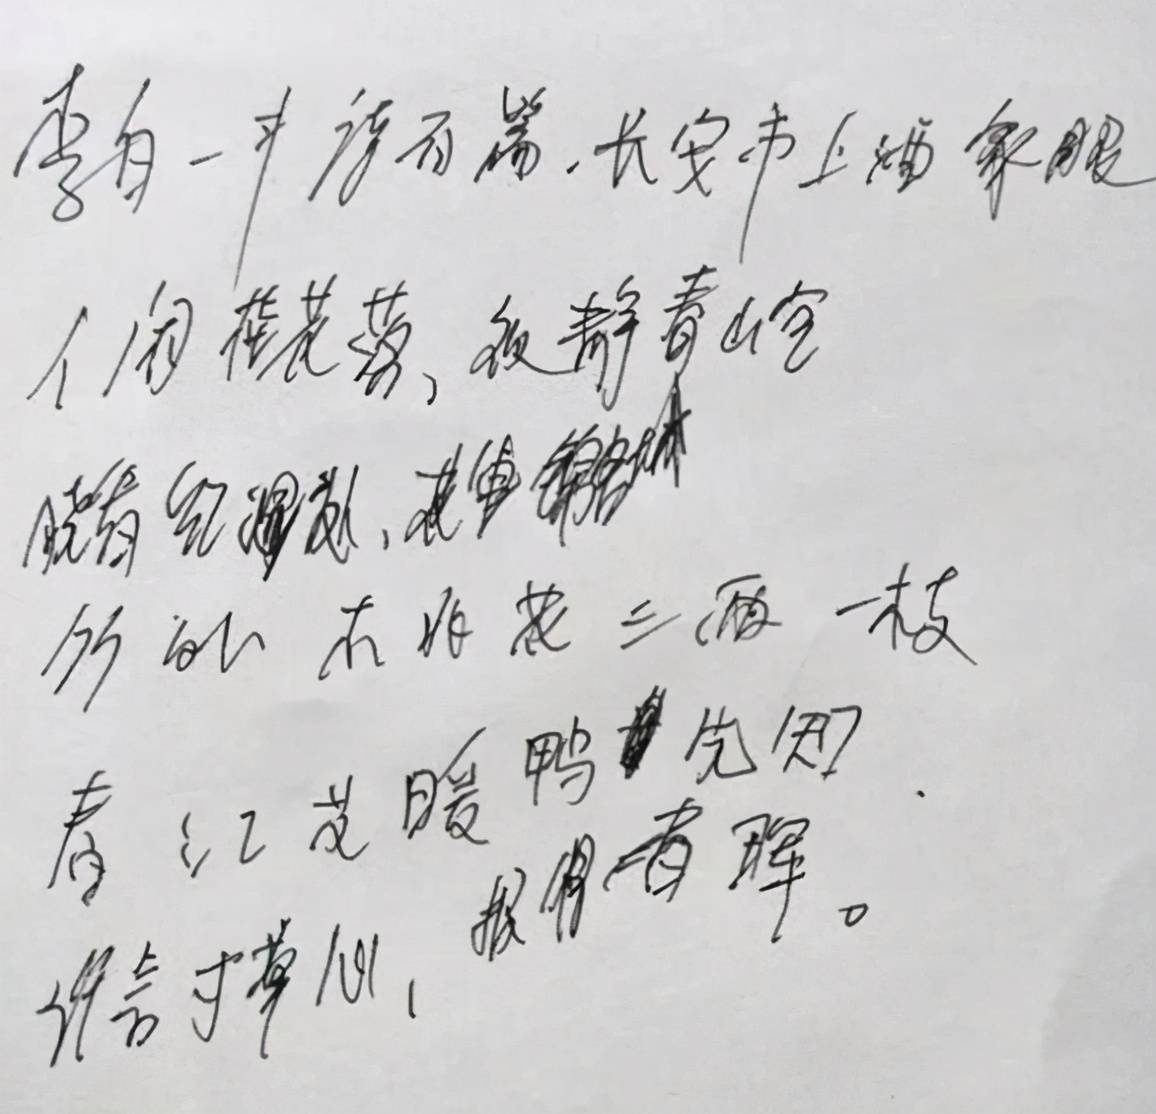 李白一斗诗百篇，长安市上酒家眠
人闲桂花落，夜静春山空
晓看红湿处，花重锦官城
竹外桃花三两枝
春江暖鸭先知
谁言寸草心，报得三春晖。